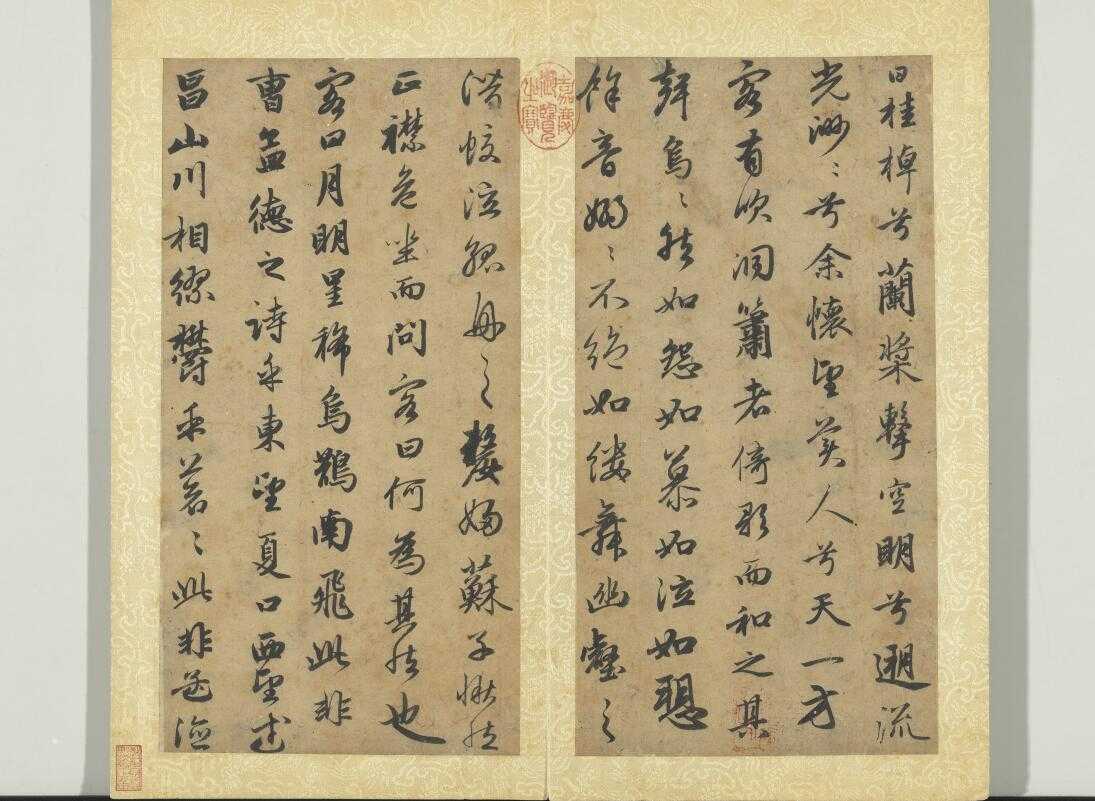 曰桂棹兮蘭槳擊空明兮遡流
光渺〻兮余懷望美人兮天一方
客有吹洞簫者倚歌而和之其
聲烏〻然如怨如慕如泣如愬
餘音嫋〻不絕如縷舞幽壑之
嘉慶御覽之寶
潛蛟泣孤舟之嫠婦蘇子愀然
正襟危坐而問客曰何為其然也
客曰月明星稀烏鵲南飛此非
曹孟德之詩乎東望夏口西望武
昌山川相繆鬱乎蒼〻此非孟德